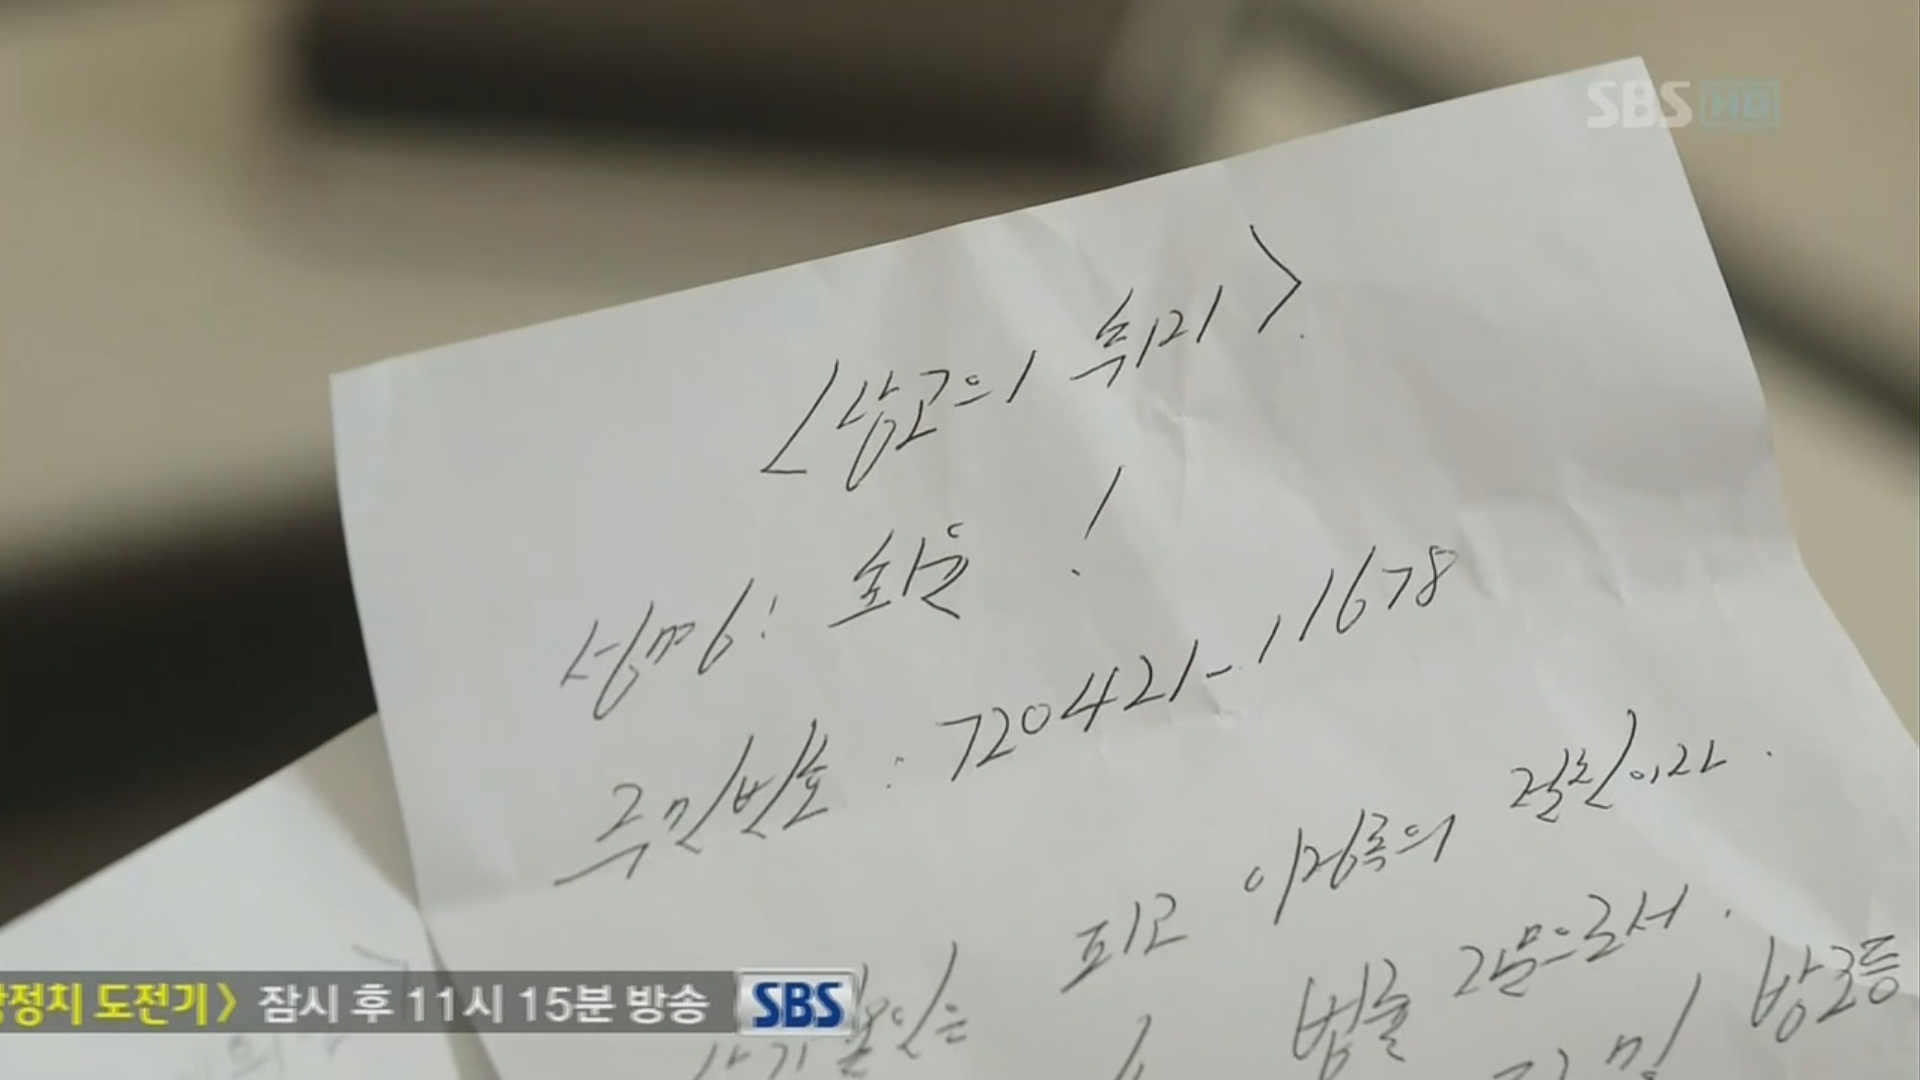 SBS HD
<상고의 취미>
성명: 최윤 !
주민번호 : 720421-111678
피고 이경록의 절친이라.
법률 자문으로서.
방조등
정치 도전기> 잠시 후 11시 15분 방송 SBS